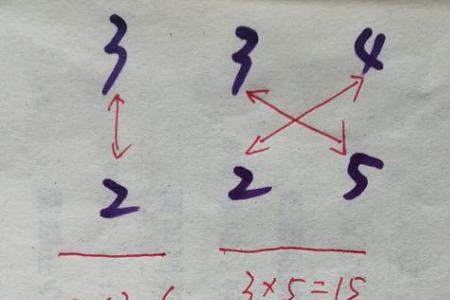 3 3 4
2 2 5
3×5=15